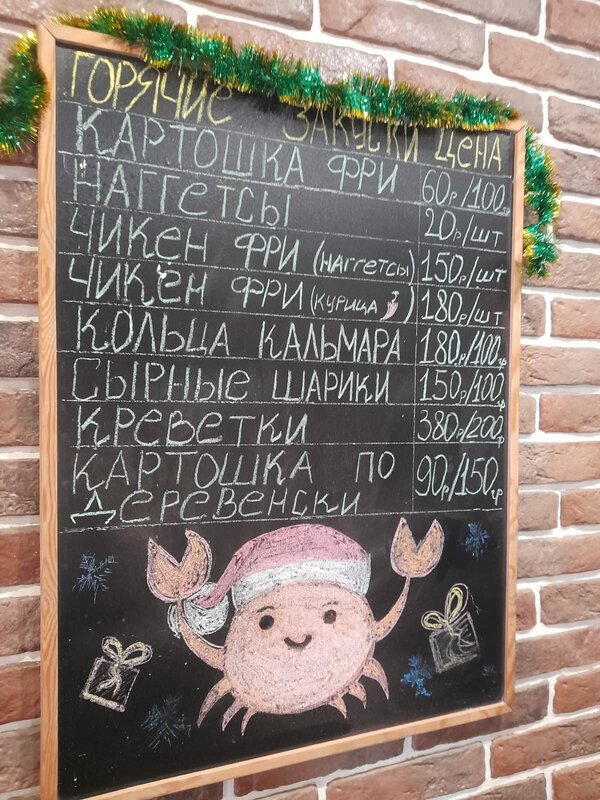 ГОРЯЧИЕ ЗАКУСКИ ЦЕНА
КАРТОШКА ФРИ 60р/100гр
НАГГЕТСЫ 20р/шт
ЧИКЕН ФРИ (НАГГЕТСЫ) 150р/шт
ЧИКЕН ФРИ (КУРИЦА) 180р/шт
КОЛЬЦА КАЛЬМАРА 180р/100гр
СЫРНЫЕ ШАРИКИ 150р/100гр
КРЕВЕТКИ 380р/200гр
КАРТОШКА ПО 90р/150гр
ДЕРЕВЕНСКИ